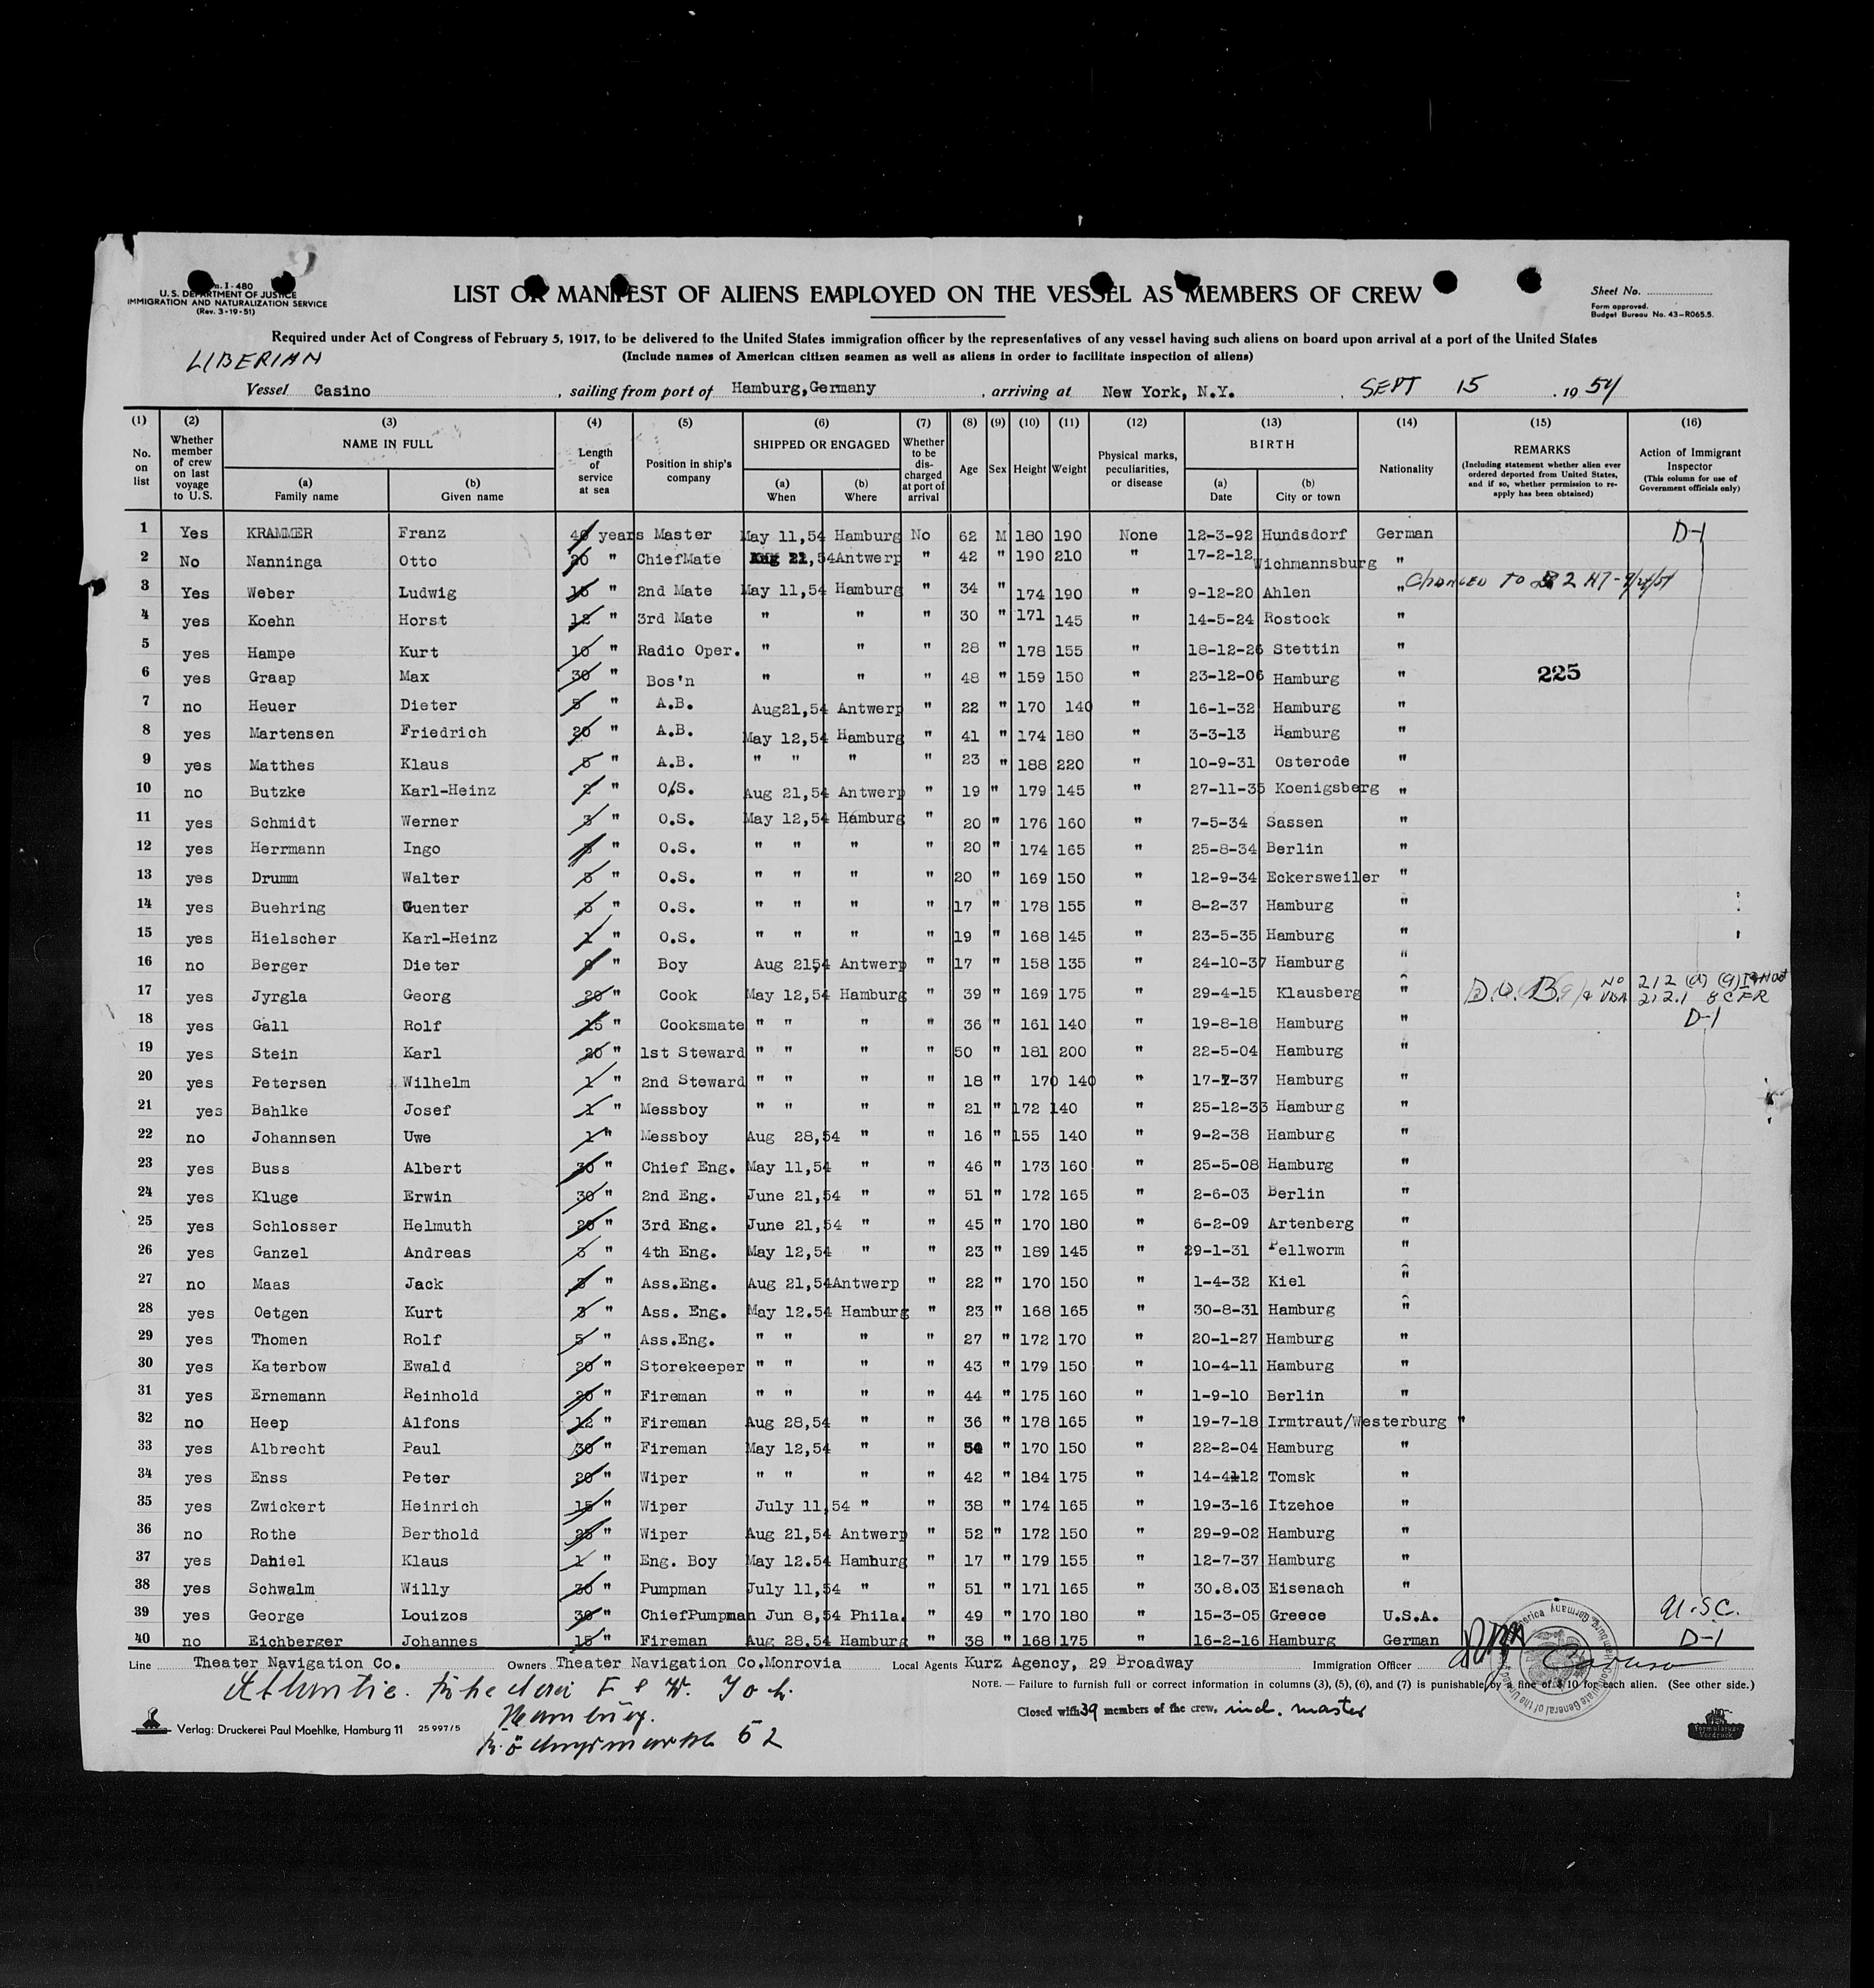 Form. I-480
U.S. DEPARTMENT OF JUSTICE
IMMIGRATION AND NATURALIZATION SERVICE
(Rev. 3-19-51)
LIST OR MANIFEST OF ALIENS EMPLOYED ON THE VESSEL AS MEMBERS OF CREW
Sheet No.
Form approved.
Budget Bureau No. 43-R065.5.
Required under Act of Congress of February 5, 1917, to be delivered to the United States immigration officer by the representatives of any vessel having such aliens on board upon arrival at a port of the United States
(Include names of American citizen seamen as well as aliens in order to facilitate inspection of aliens)
LIBERIAN
Vessel Casino , sailing from port of Hamburg,Germany , arriving at New York, N.Y. , SEPT 15 , 1954
(1) No. on list
(2) Whether member of crew on last voyage to U.S.
(3) NAME IN FULL
(a) Family name
(b) Given name
(4) Length of service at sea
(5) Position in ship's company
(6) SHIPPED OR ENGAGED
(a) When
(b) Where
(7) Whether to be discharged at port of arrival
(8) Age
(9) Sex
(10) Height
(11) Weight
(12) Physical marks, peculiarities, or disease
(13) BIRTH
(a) Date
(b) City or town
(14) Nationality
(15) REMARKS (Including statement whether alien ever ordered deported from United States, and if so, whether permission to re-apply has been obtained)
(16) Action of Immigrant Inspector (This column for use of Government officials only)
1 Yes KRAMMER Franz 40 years Master May 11,54 Hamburg No 62 M 180 190 None 12-3-92 Hundsdorf German D-1
2 No Nanninga Otto 20 " ChiefMate Aug 21,54 Antwerp " 42 " 190 210 " 17-2-12 Wichmannsburg "
3 Yes Weber Ludwig 15 " 2nd Mate May 11,54 Hamburg " 34 " 174 190 " 9-12-20 Ahlen " CHANGED TO
4 yes Koehn Horst 12 " 3rd Mate " " " 30 " 171 145 " 14-5-24 Rostock "
5 yes Hampe Kurt 10 " Radio Oper. " " " 28 " 178 155 " 18-12-26 Stettin "
6 yes Graap Max 30 " Bos'n " " " 48 " 159 150 " 23-12-06 Hamburg " 225
7 no Heuer Dieter 5 " A.B. Aug21,54 Antwerp " 22 " 170 140 " 16-1-32 Hamburg "
8 yes Martensen Friedrich 20 " A.B. May 12,54 Hamburg " 41 " 174 180 " 3-3-13 Hamburg "
9 yes Matthes Klaus 5 " A.B. " " " " 23 " 188 220 " 10-9-31 Osterode "
10 no Butzke Karl-Heinz 2 " O.S. Aug 21,54 Antwerp " 19 " 179 145 " 27-11-35 Koenigsberg "
11 yes Schmidt Werner 3 " O.S. May 12,54 Hamburg " 20 " 176 160 " 7-5-34 Sassen "
12 yes Herrmann Ingo " O.S. " " " " 20 " 174 165 " 25-8-34 Berlin "
13 yes Drumm Walter 3 " O.S. " " " " 20 " 169 150 " 12-9-34 Eckersweiler "
14 yes Buehring Guenter 3 " O.S. " " " " 17 " 178 155 " 8-2-37 Hamburg "
15 yes Hielscher Karl-Heinz 1 " O.S. " " " " 19 " 168 145 " 23-5-35 Hamburg "
16 no Berger Dieter 0 " Boy Aug 21,54 Antwerp " 17 " 158 135 " 24-10-37 Hamburg "
17 yes Jyrgla Georg 20 " Cook May 12,54 Hamburg " 39 " 169 175 " 29-4-15 Klausberg " NO 212 (d) 212.1 8 CFR
18 yes Gall Rolf 15 " Cooksmate " " " " 36 " 161 140 " 19-8-18 Hamburg " D-1
19 yes Stein Karl 20 " 1st Steward " " " " 50 " 181 200 " 22-5-04 Hamburg "
20 yes Petersen Wilhelm 1 " 2nd Steward " " " " 18 " 170 140 " 17-1-37 Hamburg "
21 yes Bahlke Josef 1 " Messboy " " " " 21 " 172 140 " 25-12-33 Hamburg "
22 no Johannsen Uwe 1 " Messboy Aug 28,54 " " 16 " 155 140 " 9-2-38 Hamburg "
23 yes Buss Albert 30 " Chief Eng. May 11,54 " " 46 " 173 160 " 25-5-08 Hamburg "
24 yes Kluge Erwin 30 " 2nd Eng. June 21,54 " " 51 " 172 165 " 2-6-03 Berlin "
25 yes Schlosser Helmuth 20 " 3rd Eng. June 21,54 " " 45 " 170 180 " 6-2-09 Artenberg "
26 yes Ganzel Andreas 3 " 4th Eng. May 12,54 " " 23 " 189 145 " 29-1-31 Pellworm "
27 no Maas Jack 3 " Ass.Eng. Aug 21,54 Antwerp " 22 " 170 150 " 1-4-32 Kiel "
28 yes Oetgen Kurt 3 " Ass. Eng. May 12.54 Hamburg " 23 " 168 165 " 30-8-31 Hamburg "
29 yes Thomen Rolf 5 " Ass.Eng. " " " " 27 " 172 170 " 20-1-27 Hamburg "
30 yes Katerbow Ewald 20 " Storekeeper " " " " 43 " 179 150 " 10-4-11 Hamburg "
31 yes Ernemann Reinhold 20 " Fireman " " " " 44 " 175 160 " 1-9-10 Berlin "
32 no Heep Alfons 12 " Fireman Aug 28,54 " " 36 " 178 165 " 19-7-18 Irmtraut/Westerburg "
33 yes Albrecht Paul 30 " Fireman May 12,54 " " 50 " 170 150 " 22-2-04 Hamburg "
34 yes Enss Peter 20 " Wiper " " " " 42 " 184 175 " 14-4-12 Tomsk "
35 yes Zwickert Heinrich 15 " Wiper July 11,54 " " 38 " 174 165 " 19-3-16 Itzehoe "
36 no Rothe Berthold 25 " Wiper Aug 21,54 Antwerp " 52 " 172 150 " 29-9-02 Hamburg "
37 yes Daniel Klaus 1 " Eng. Boy May 12.54 Hamburg " 17 " 179 155 " 12-7-37 Hamburg "
38 yes Schwalm Willy 30 " Pumpman July 11,54 " " 51 " 171 165 " 30.8.03 Eisenach "
39 yes George Louizos 30 " ChiefPumpman Jun 8,54 Phila. " 49 " 170 180 " 15-3-05 Greece U.S.A. U.S.C.
40 no Eichberger Johannes 15 " Fireman Aug 28,54 Hamburg " 38 " 168 175 " 16-2-16 Hamburg German D-1
Line Theater Navigation Co. Owners Theater Navigation Co.Monrovia Local Agents Kurz Agency, 29 Broadway Immigration Officer
NOTE. — Failure to furnish full or correct information in columns (3), (5), (6), and (7) is punishable by a fine of $10 for each alien. (See other side.)
Atlantic
Hamburg.
52
Closed with 39 members of the crew, incl. master
Verlag: Druckerei Paul Moehlke, Hamburg 11 25 997/5
Formular-Vordruck